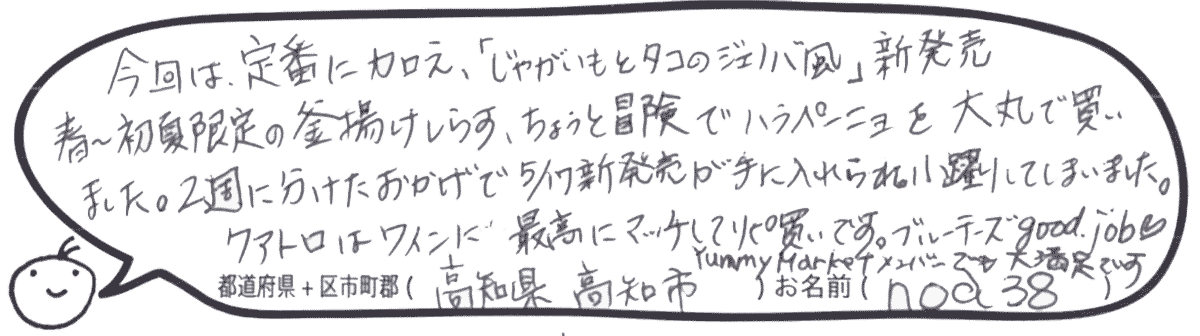 今回は、定番に加え、「じゃがいもとタコのジェノバ風」新発売
春〜初夏限定の釜揚げしらす、ちょうと冒険でハラペーニョを大丸で買い
ました。2週に分けたおかげで5/17新発売が手に入れられ小躍りしてしまいました。
クアトロはワインに最高にマッチしてリピ買いです。ブルーチーズgood.job♡
Yummy Marketメンバーでも大満足です
都道府県+区市町郡(高知県 高知市)お名前(noa 38)